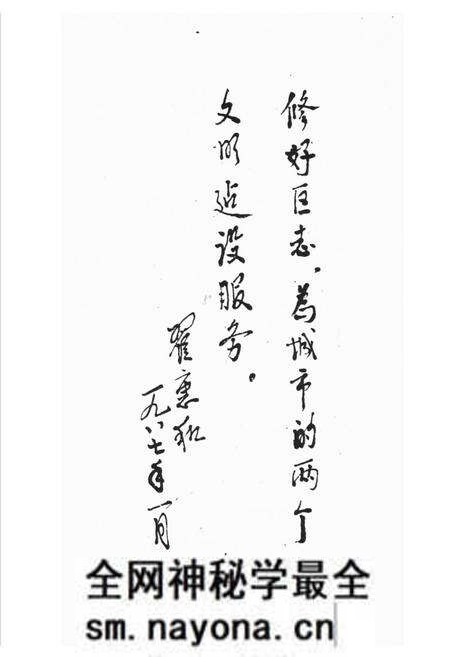 修好区志，为城市的两个
文明建设服务。
翟惠和
一九八七年一月
全网神秘学最全
sm.nayona.cn